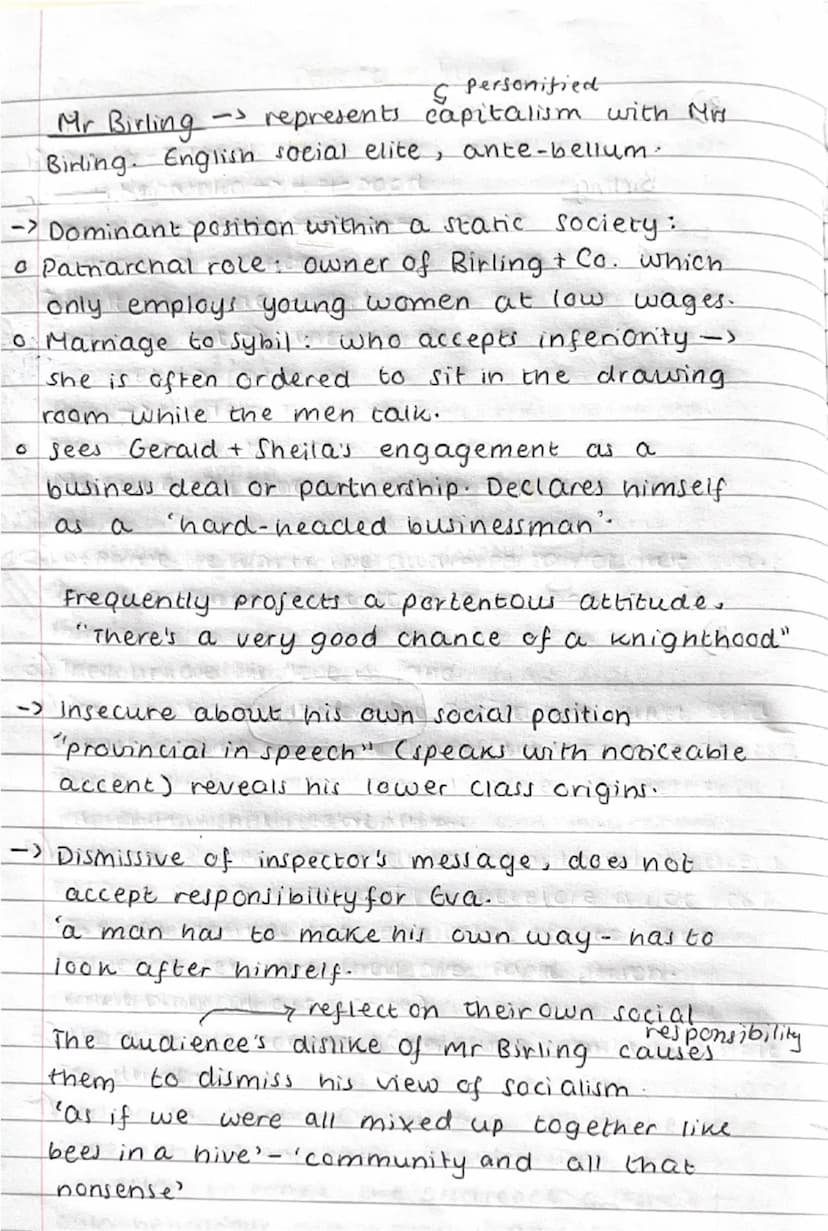 ↳ personified
Mr Birling → represents capitalism with Mrs
Birling. English social elite, ante-bellum.
→ Dominant position within a static society:
o Patriarchal role: owner of Birling + Co. which
only employs young women at low wages.
o Marriage to Sybil: who accepts inferiority →
she is often ordered to sit in the drawing
room while the men talk.
o sees Gerald + Sheila's engagement as a
business deal or partnership. Declares himself
as a 'hard-headed businessman'.
Frequently projects a portentous attitude.
"There's a very good chance of a knighthood"
→ Insecure about his own social position
"provincial in speech" (speaks with noticeable
accent) reveals his lower class origins.
→ Dismissive of inspector's message, does not
accept responsibility for Eva.
'a man has to make his own way - has to
look after himself.
→ reflect on their own social
responsibility
The audience's dislike of Mr Birling causes
them to dismiss his view of socialism
'as if we were all mixed up together like
bees in a hive' - 'community and all that
nonsense'